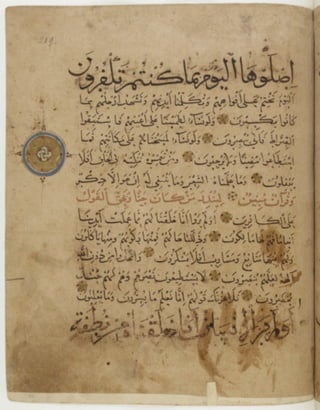 اصلوها اليوم بما كنتم تكفرون
اليوم نختم على أفواههم وتكلمنا أيديهم وتشهد أرجلهم بما
كانوا يكسبون ولو نشاء لطمسنا على أعينهم فاستبقوا
الصراط فأنى يبصرون ولو نشاء لمسخناهم على مكانتهم فما
استطاعوا مضيا ولا يرجعون ومن نعمره ننكسه في الخلق أفلا
يعقلون وما علمناه الشعر وما ينبغي له إن هو إلا ذكر
وقرآن مبين لينذر من كان حيا ويحق القول
على الكافرين أولم يروا أنا خلقنا لهم مما عملت أيدينا
أنعاما فهم لها مالكون وذللناها لهم فمنها ركوبهم ومنها يأكلون
ولهم فيها منافع ومشارب أفلا يشكرون واتخذوا من دون الله
آلهة لعلهم ينصرون لا يستطيعون نصرهم وهم لهم جند
محضرون فلا يحزنك قولهم إنا نعلم ما يسرون وما يعلنون
أولم ير الإنسان أنا خلقناه من نطفة